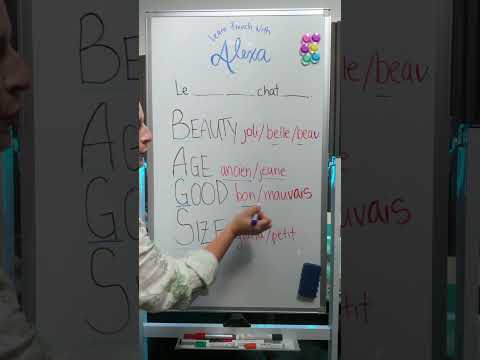 Learn French With
Alexa
Le ___ ___ chat ___
BEAUTY joli/belle/beau
AGE ancien/jeune
GOOD bon/mauvais
SIZE /petit